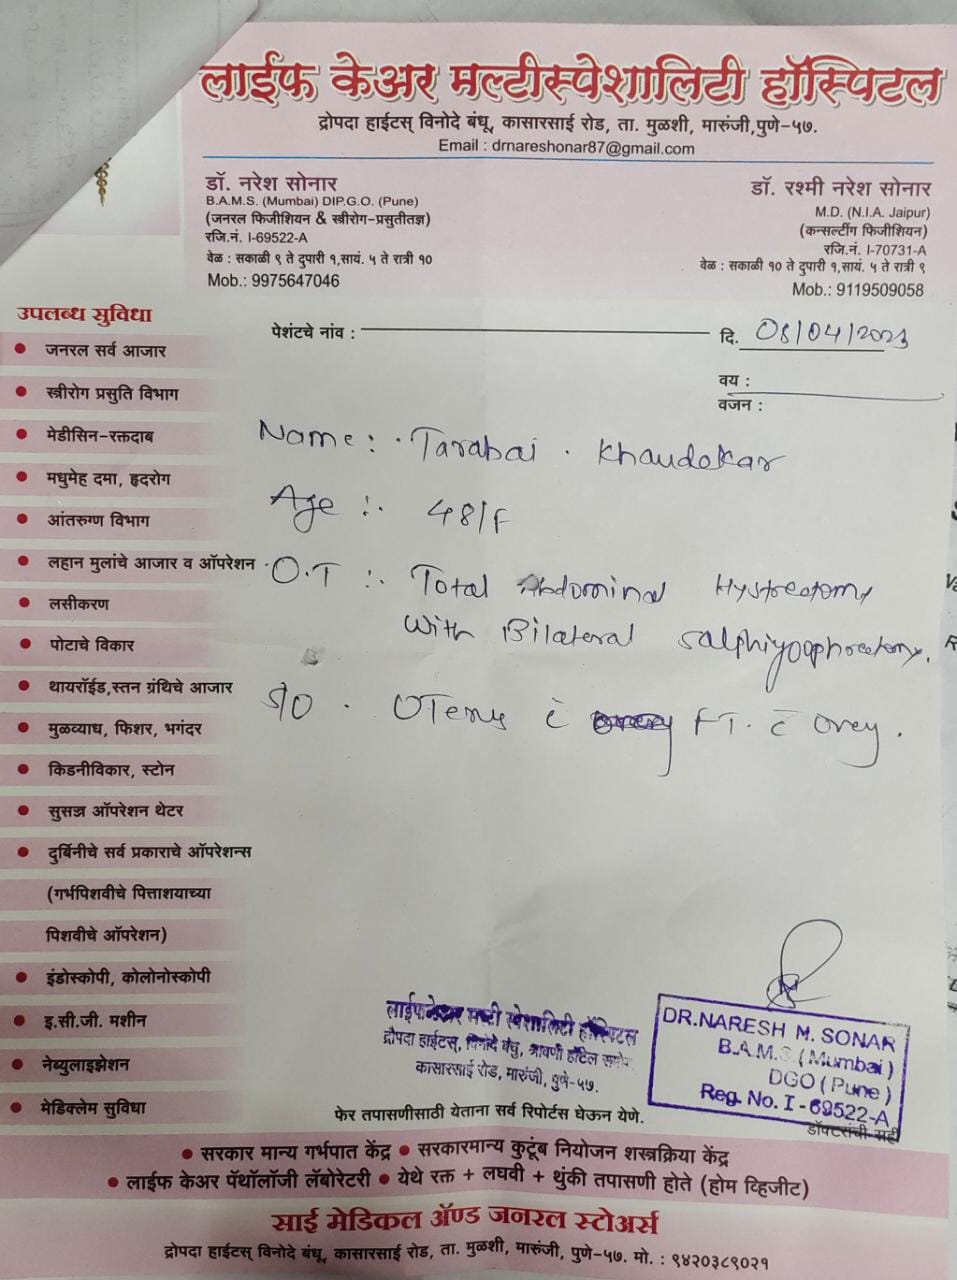 लाईफ केअर मल्टीस्पेशालिटी हॉस्पिटल
द्रोपदा हाईटस् विनोदे बंधू, कासारसाई रोड, ता. मुळशी, मारुंजी,पुणे-५७.
Email : drnareshonar87@gmail.com
डॉ. नरेश सोनार
B.A.M.S. (Mumbai) DIP.G.O. (Pune)
(जनरल फिजीशियन & स्त्रीरोग-प्रसुतीतज्ञ)
रजि.नं. I-69522-A
वेळ : सकाळी ९ ते दुपारी १,सायं. ५ ते रात्री १०
Mob.: 9975647046
डॉ. रश्मी नरेश सोनार
M.D. (N.I.A. Jaipur)
(कन्सल्टींग फिजीशियन)
रजि.नं. I-70731-A
वेळ : सकाळी १० ते दुपारी १,सायं. ५ ते रात्री ९
Mob.: 9119509058
पेशंटचे नांव :
दि. 08/04/2023
वय :
वजन :
उपलब्ध सुविधा
जनरल सर्व आजार
स्त्रीरोग प्रसुति विभाग
मेडीसिन-रक्तदाब
मधुमेह दमा, हृदरोग
आंतरुग्ण विभाग
लहान मुलांचे आजार व ऑपरेशन
लसीकरण
पोटाचे विकार
थायरॉईड,स्तन ग्रंथिचे आजार
मुळव्याध, फिशर, भगंदर
किडनीविकार, स्टोन
सुसज्ज ऑपरेशन थेटर
दुर्बिनीचे सर्व प्रकाराचे ऑपरेशन्स
(गर्भपिशवीचे पित्ताशयाच्या
पिशवीचे ऑपरेशन)
इंडोस्कोपी, कोलोनोस्कोपी
इ.सी.जी. मशीन
नेब्युलाइझेशन
मेडिक्लेम सुविधा
Name : Tarabai . Khaudekar
Age : 48/F
O.T : Total Abdominal Hystrectomy
With Bilateral Salphiyoophrectomy.
S/O . UTerus c̄ FT. c̄ Overy.
लाईफकेअर मल्टी स्पेशालिटी हॉस्पिटल
द्रौपदा हाईटस्, विनोदे बंधु, श्रावणी हॉटेल समोर
कासारसाई रोड, मारुंजी, पुणे-५७.
DR.NARESH M. SONAR
B.A.M.S (Mumbai)
DGO (Pune)
Reg. No. I - 69522-A
डॉक्टरांची सही
फेर तपासणीसाठी येताना सर्व रिपोर्टस घेऊन येणे.
सरकार मान्य गर्भपात केंद्र • सरकारमान्य कुटूंब नियोजन शस्त्रक्रिया केंद्र
लाईफ केअर पॅथॉलॉजी लॅबोरेटरी • येथे रक्त + लघवी + थुंकी तपासणी होते (होम व्हिजीट)
साई मेडिकल ॲण्ड जनरल स्टोअर्स
द्रोपदा हाईटस् विनोदे बंधू, कासारसाई रोड, ता. मुळशी, मारुंजी, पुणे-५७. मो. : ९४२०३८९०२१